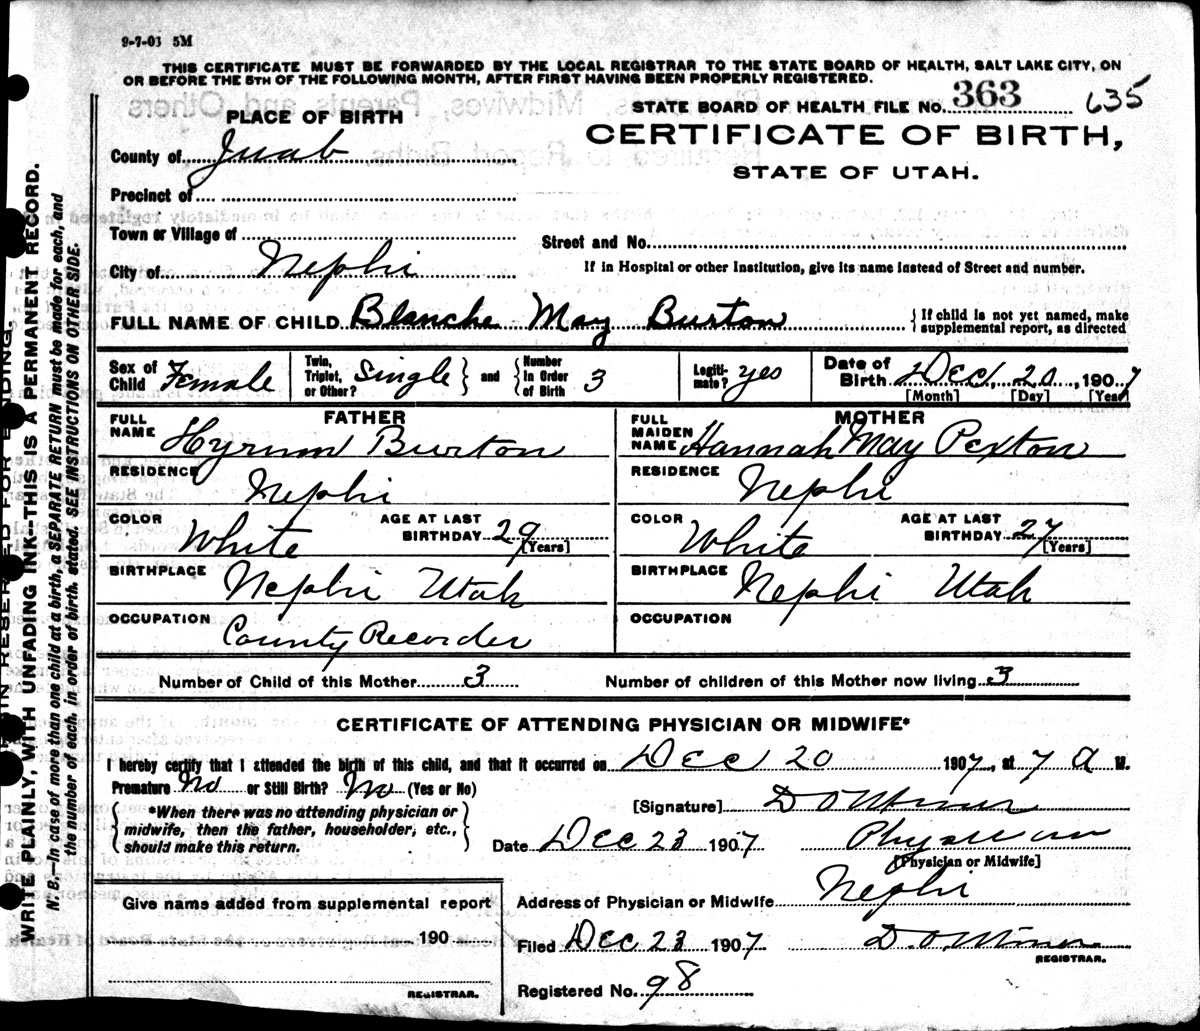 9-7-03 5M
THIS CERTIFICATE MUST BE FORWARDED BY THE LOCAL REGISTRAR TO THE STATE BOARD OF HEALTH, SALT LAKE CITY, ON
OR BEFORE THE 5TH OF THE FOLLOWING MONTH, AFTER FIRST HAVING BEEN PROPERLY REGISTERED.
STATE BOARD OF HEALTH FILE No. 363 635
PLACE OF BIRTH
CERTIFICATE OF BIRTH,
STATE OF UTAH.
County of Juab
Precinct of
Town or Village of
Street and No.
City of Nephi
If in Hospital or other Institution, give its name instead of Street and number.
FULL NAME OF CHILD Blanche May Burton
{ If child is not yet named, make
supplemental report, as directed
Sex of Child Female
Twin, Triplet, or Other? Single } and { Number in Order of Birth 3
Legiti-mate? yes
Date of Birth Dec, 20, 1907
[Month] [Day] [Year]
FATHER
FULL NAME Hyrum Burton
MOTHER
FULL MAIDEN NAME Hannah May Pexton
RESIDENCE Nephi
RESIDENCE Nephi
COLOR White
AGE AT LAST BIRTHDAY 29 [Years]
COLOR White
AGE AT LAST BIRTHDAY 27 [Years]
BIRTHPLACE Nephi Utah
BIRTHPLACE Nephi Utah
OCCUPATION County Recorder
OCCUPATION
Number of Child of this Mother 3
Number of children of this Mother now living 3
CERTIFICATE OF ATTENDING PHYSICIAN OR MIDWIFE*
I hereby certify that I attended the birth of this child, and that it occurred on Dec 20 1907, at 7 a M.
Premature No or Still Birth? No (Yes or No)
{ *When there was no attending physician or
midwife, then the father, householder, etc.,
should make this return. }
[Signature] D O Miner
Date Dec 23 1907 Physician
[Physician or Midwife]
Address of Physician or Midwife Nephi
Give name added from supplemental report
190
REGISTRAR.
Filed Dec 23 1907 D. O. Miner
REGISTRAR.
Registered No. 98
WRITE PLAINLY, WITH UNFADING INK--THIS IS A PERMANENT RECORD.
N. B.--In case of more than one child at a birth, a SEPARATE RETURN must be made for each, and
the number of each, in order of birth, stated. SEE INSTRUCTIONS ON OTHER SIDE.